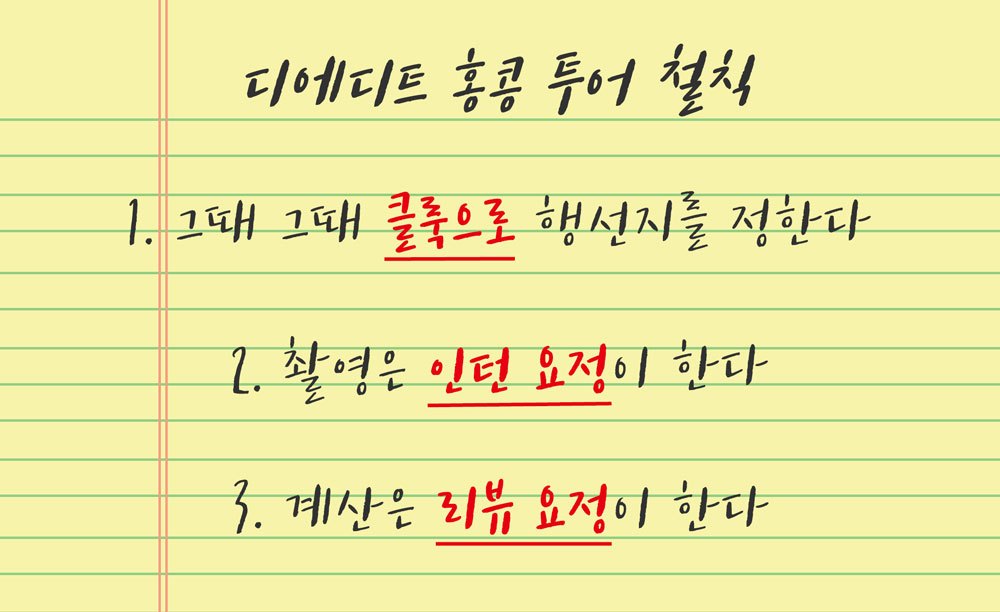 디에디트 홍콩 투어 철칙
1. 그때 그때 클룩으로 행선지를 정한다
2. 촬영은 인턴 요정이 한다
3. 계산은 리뷰 요정이 한다